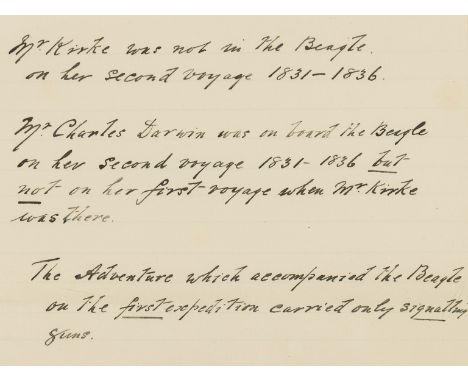 Mr Kirke was not in the Beagle.
on her second voyage 1831-1836.
Mr. Charles Darwin was on board the Beagle
on her second voyage 1831-1836 but
not on her first voyage when Mr. Kirke
was there.
The Adventure which accompanied the Beagle
on the first expedition carried only signalling
guns.